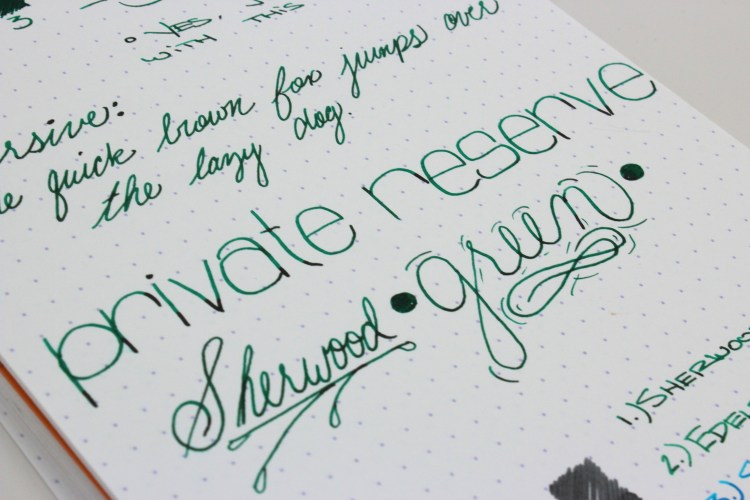 3
YES,
WITH THIS
rsive:
e quick brown fox jumps over
the lazy dog.
private reserve
Sherwood • green •
1.) SHERWOO
2.) EDEL
3.) S